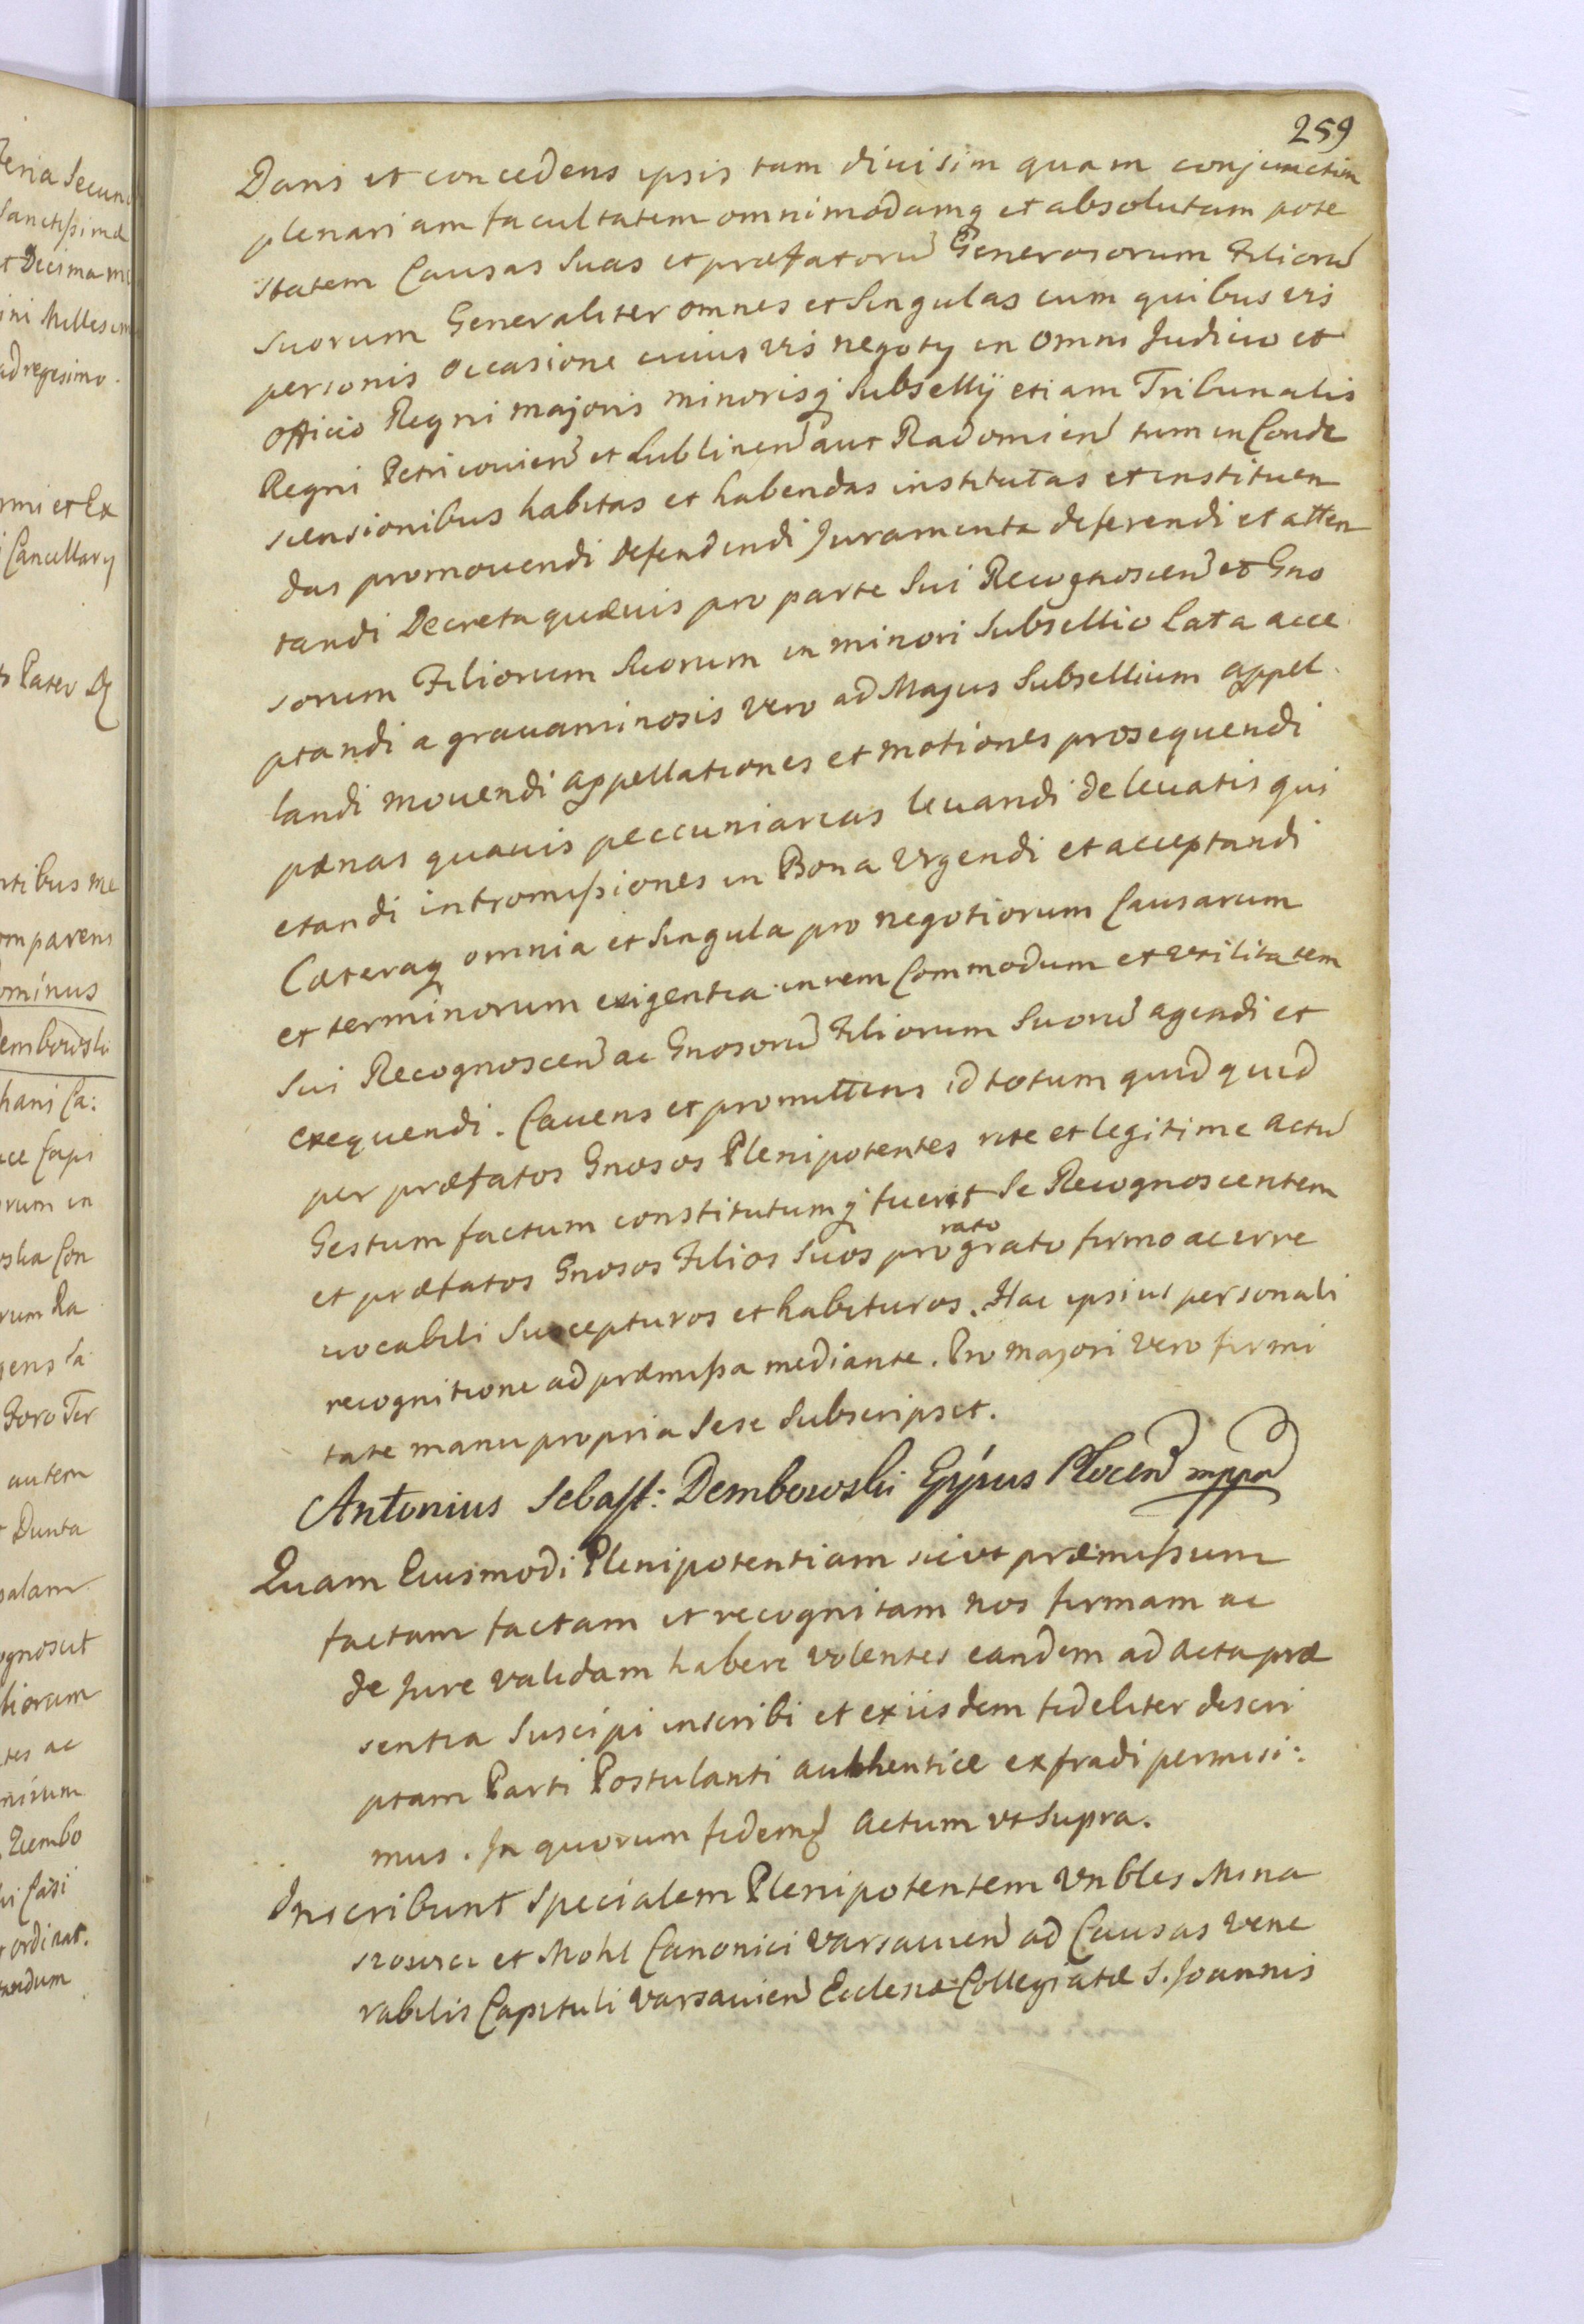 259
Dans et concedens ipsis tam divisim quam conjunctim
plenariam facultatem omnimodamq et absolutam pote
statem Causas Suas et præfatorũ Generosorum Filiorũ
Suorum Generaliter omnes et Singulas cum quibus vis
personis occasione cuius vis negoty in omni Judicio et
officio Regni majoris minorisq Subsellÿ etiam Tribunalis
Regni Petricovien et Lublinen aut Radomien tum in Conde
scensionibus habitas et habendas institutas et instituen
das promovendi defendendi Juramenta deferendi et atten
tandi Decreta quævis pro parte Sui Recognoscen et Gno
sorum Filiorum Suorum in minori Subsellio lata acce
ptandi a gravaminosis vero ad Majus Subsellium appel
landi movendi appellationes et motiones prosequendi
pænas quavis peccuniarias levandi de levatis qui
etandi intromissiones in Bona urgendi et acceptandi
Cæteraq omnia et Singula pro negotiorum Causarum
et terminorum exigentia in rem Commodum et utilitatem
Sui Recognoscen ac Gnosorũ Filiorum Suorũ agendi et
exequendi. Cavens et promittens id totum quid quid
per præfatos Gnosos Plenipotentes rite et legitime actũ
Gestum factum constitutumq fuerit Se Recognoscentem
et præfatos Gnosos Filios Suos pro rato grato firmo ac irre
vocabili Suscepturos et habituros. Hac ipsius personali
recognitione ad præmissa mediante. Pro majori vero firmi
tate manu propria Sese Subscripsit.
Antonius Sebast: Dembowski Eppus Plocen mppa
Quam Eiusmodi Plenipotentiam sicut præmissum
factam factam et recognitam nos firmam ac
de Jure validam habere volentes eandem ad Acta præ
sentia Suscipi inscribi et ex iisdem fideliter descri
ptam Parti Postulanti authentice extradi permisi:
mus. In quorum fidemq Actum ut Supra.
Inscribunt Specialem Plenipotentem Vnbles Mina
szowicz et Mohl Canonici Varsavien ad Causas Vene
rabilis Capituli Varsavien Ecclesiæ Collegiatæ S. Joannis